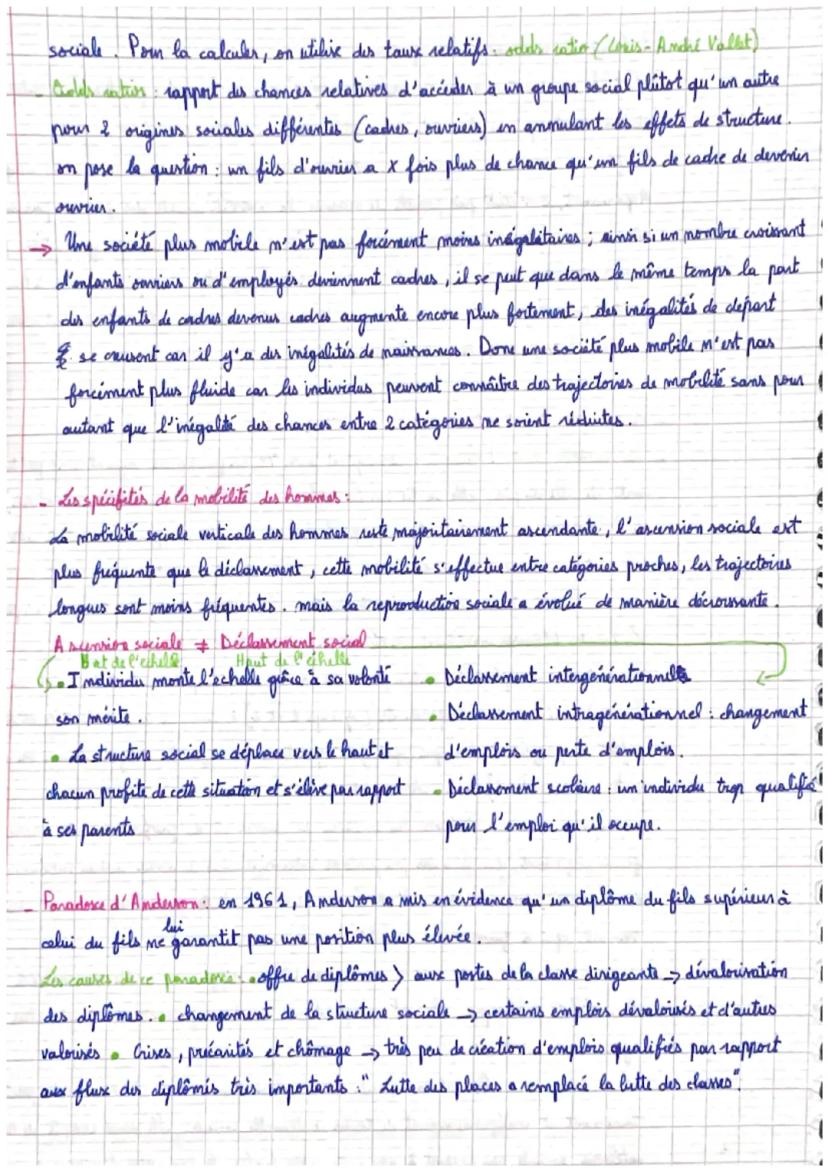 sociale. Pour la calculer, on utilise des taux relatifs : odds ratio (Louis-André Vallet)
- Odds ratios : rapport des chances relatives d'accéder à un groupe social plûtot qu'un autre
pour 2 origines sociales différentes (cadres, ouvriers) en annulant les effets de structure.
on pose la question : un fils d'ouvrier a X fois plus de chance qu'un fils de cadre de devenir
ouvrier.
→ Une société plus mobile n'est pas forcément moins inégalitaires ; ainsi si un nombre croissant
d'enfants ouvriers ou d'employés deviennent cadres, il se peut que dans le même temps la part
des enfants de cadres devenus cadres augmente encore plus fortement, des inégalités de départ
se creusent car il y'a des inégalités de naissances. Donc une société plus mobile n'est pas
forcément plus fluide car les individus peuvent connaître des trajectoires de mobilité sans pour
autant que l'inégalité des chances entre 2 catégories ne soient réduites.
- Les spécifités de la mobilité des hommes :
La mobilité sociale verticale des hommes reste majoritairement ascendante, l'ascension sociale est
plus fréquente que le déclassement, cette mobilité s'effectue entre catégories proches, les trajectoires
longues sont moins fréquentes. mais la reproduction sociale a évolué de manière décroissante.
Ascension sociale ≠ Déclassement social
Bat de l'échelle Haut de l'échelle
• Individu monte l'echelle grâce à sa volonté
son mérite.
• La structure social se déplace vers le haut et
chacun profite de cette situation et s'élève par rapport
à ses parents
• Déclassement intergénérationnel
• Déclassement intragénérationnel : changement
d'emplois ou perte d'emplois.
• Déclassement scolaire : un individu trop qualifié
pour l'emploi qu'il occupe.
- Paradoxe d'Anderson : en 1961, Anderson a mis en évidence qu'un diplôme du fils supérieur à
celui du fils ne lui garantit pas une position plus élevée.
Les causes de ce paradoxe : • offre de diplômes > aux postes de la classe dirigeante → dévalorisation
des diplômes. • changement de la structure sociale → certains emplois dévalorisés et d'autres
valorisés • Crises, précarités et chômage → très peu de création d'emplois qualifiés par rapport
aux flux des diplômés très importants : "Lutte des places a remplacé la lutte des classes".